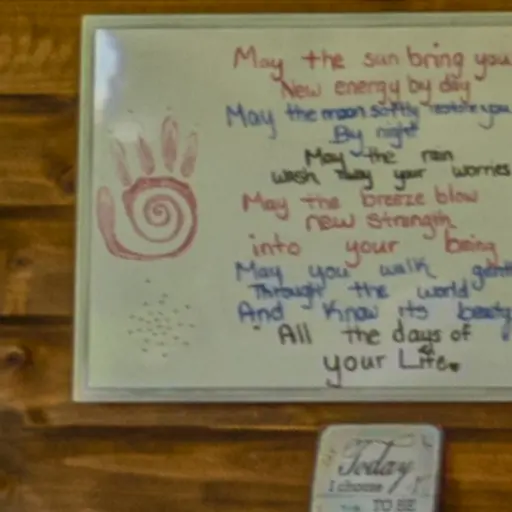 May the sun bring you
New energy by day
May the moon softly restore you
By night
May the rain
wash away your worries
May the breeze blow
new strength
into your being
May you walk
Through the world
And Know its beauty
All the days of
your Life.
Today
I choose
TO BE